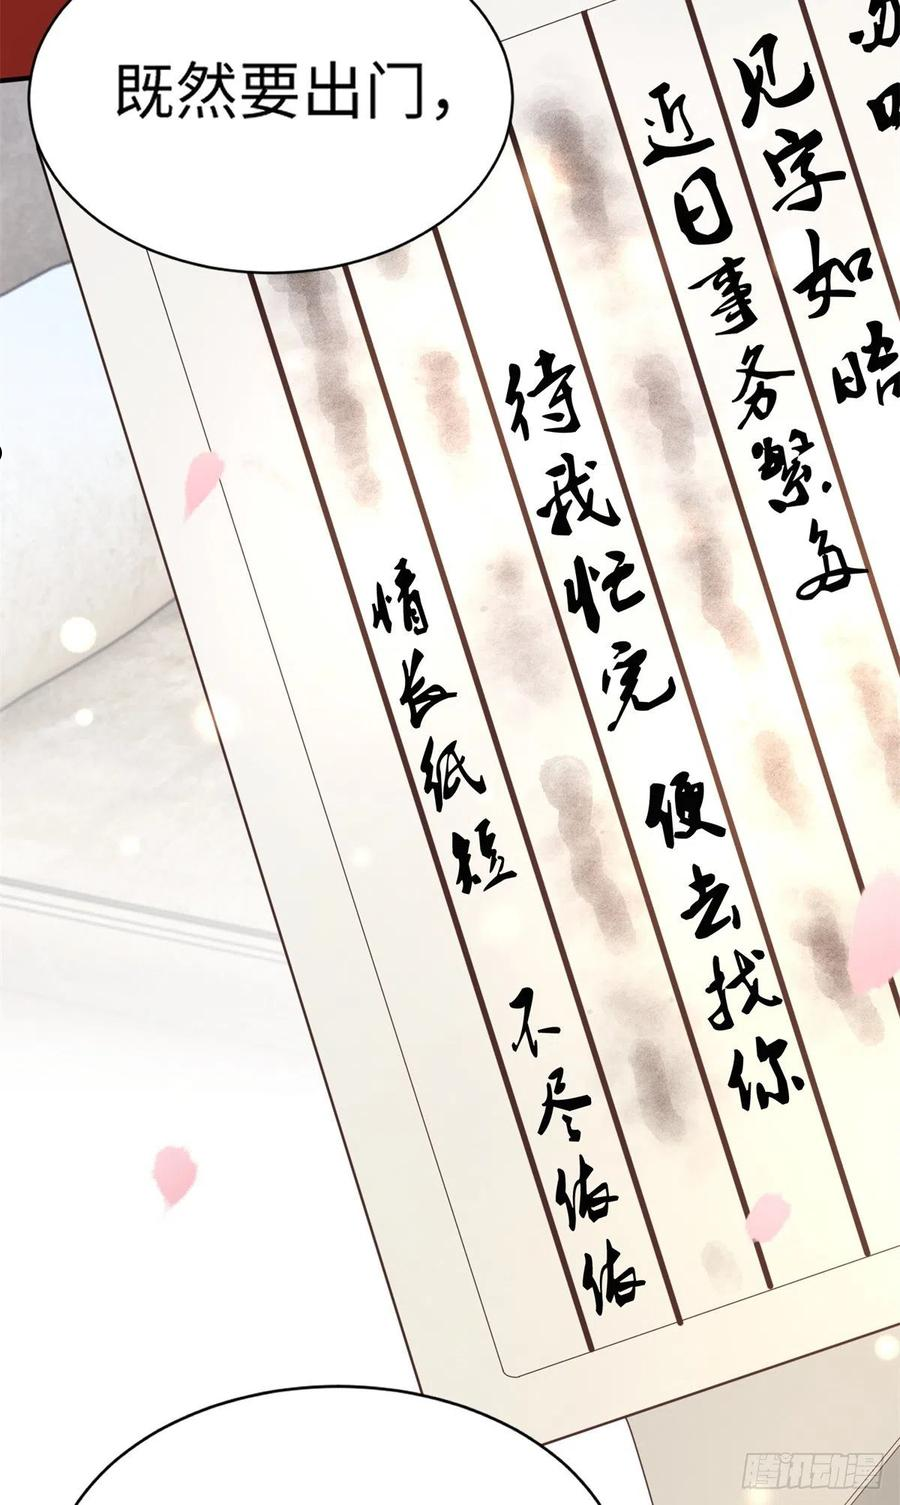 既然要出门，
见字如晤
近日事务繁多
待我忙完 便去找你
情长纸短 不尽依依
腾讯动漫